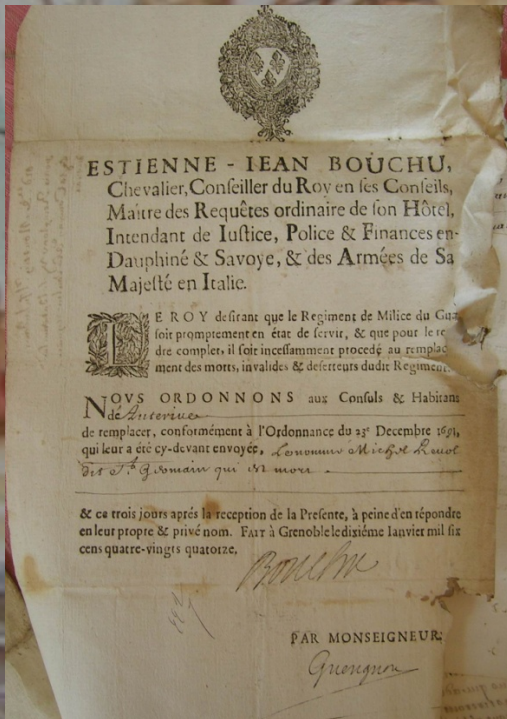 ESTIENNE - IEAN BOUCHU,
Chevalier, Conseiller du Roy en ses Conseils,
Maitre des Requêtes ordinaire de son Hôtel,
Intendant de Iustice, Police & Finances en
Dauphiné & Savoye, & des Armées de Sa
Majesté en Italie.
LE ROY desirant que le Regiment de Milice du Gua
soit promptement en état de servir, & que pour le re
dre complet, il soit incessamment procedé au remplac
ment des morts, invalides & deserteurs dudit Regiment.
NOVS ORDONNONS aux Consuls & Habitans
de
de remplacer, conformément à l'Ordonnance du 23e Decembre 1691,
qui leur a été cy-devant envoyée, Lenommé Michel
dit St. Germain qui est mort
& ce trois jours aprés la reception de la Presente, à peine d'en répondre
en leur propre & privé nom. FAIT à Grenoble le dixiéme Ianvier mil six
cens quatre-vingts quatorze,
Bouchu
PAR MONSEIGNEUR,